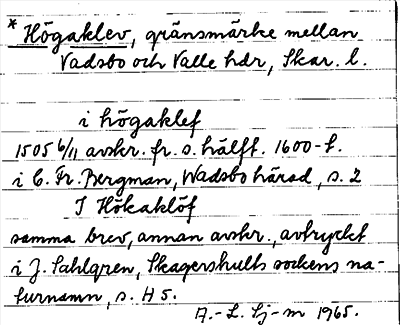 * Högaklev, gränsmärke mellan
Vadsbo och Valle hdr, Skar. l.
i högaklef
1505 6/11 avskr. fr. s. hälft. 1600-t.
i C. Fr. Bergman, Wadsbo härad, s. 2
I Hökaklöf
samma brev, annan avskr., avtryckt
i J. Sahlgren, Skagershults sockens na-
turnamn, s. 45.
A.-L. Sj-m 1965.